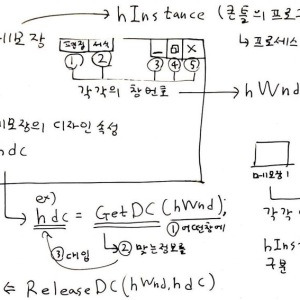 hInstance (큰틀의프로그
모장
↳ 프로세스
편집 서식
① ② ③ ④ ⑤
각각의 창번호
→ hWnd
모장의 디자인 속성
hdc
메모장1
ex)
hdc = GetDC(hWnd);
① 어떤창에
② 맞는정보를
③ 대입
각각
hIns
구분
⇐ ReleaseDC(hWnd, hdc)